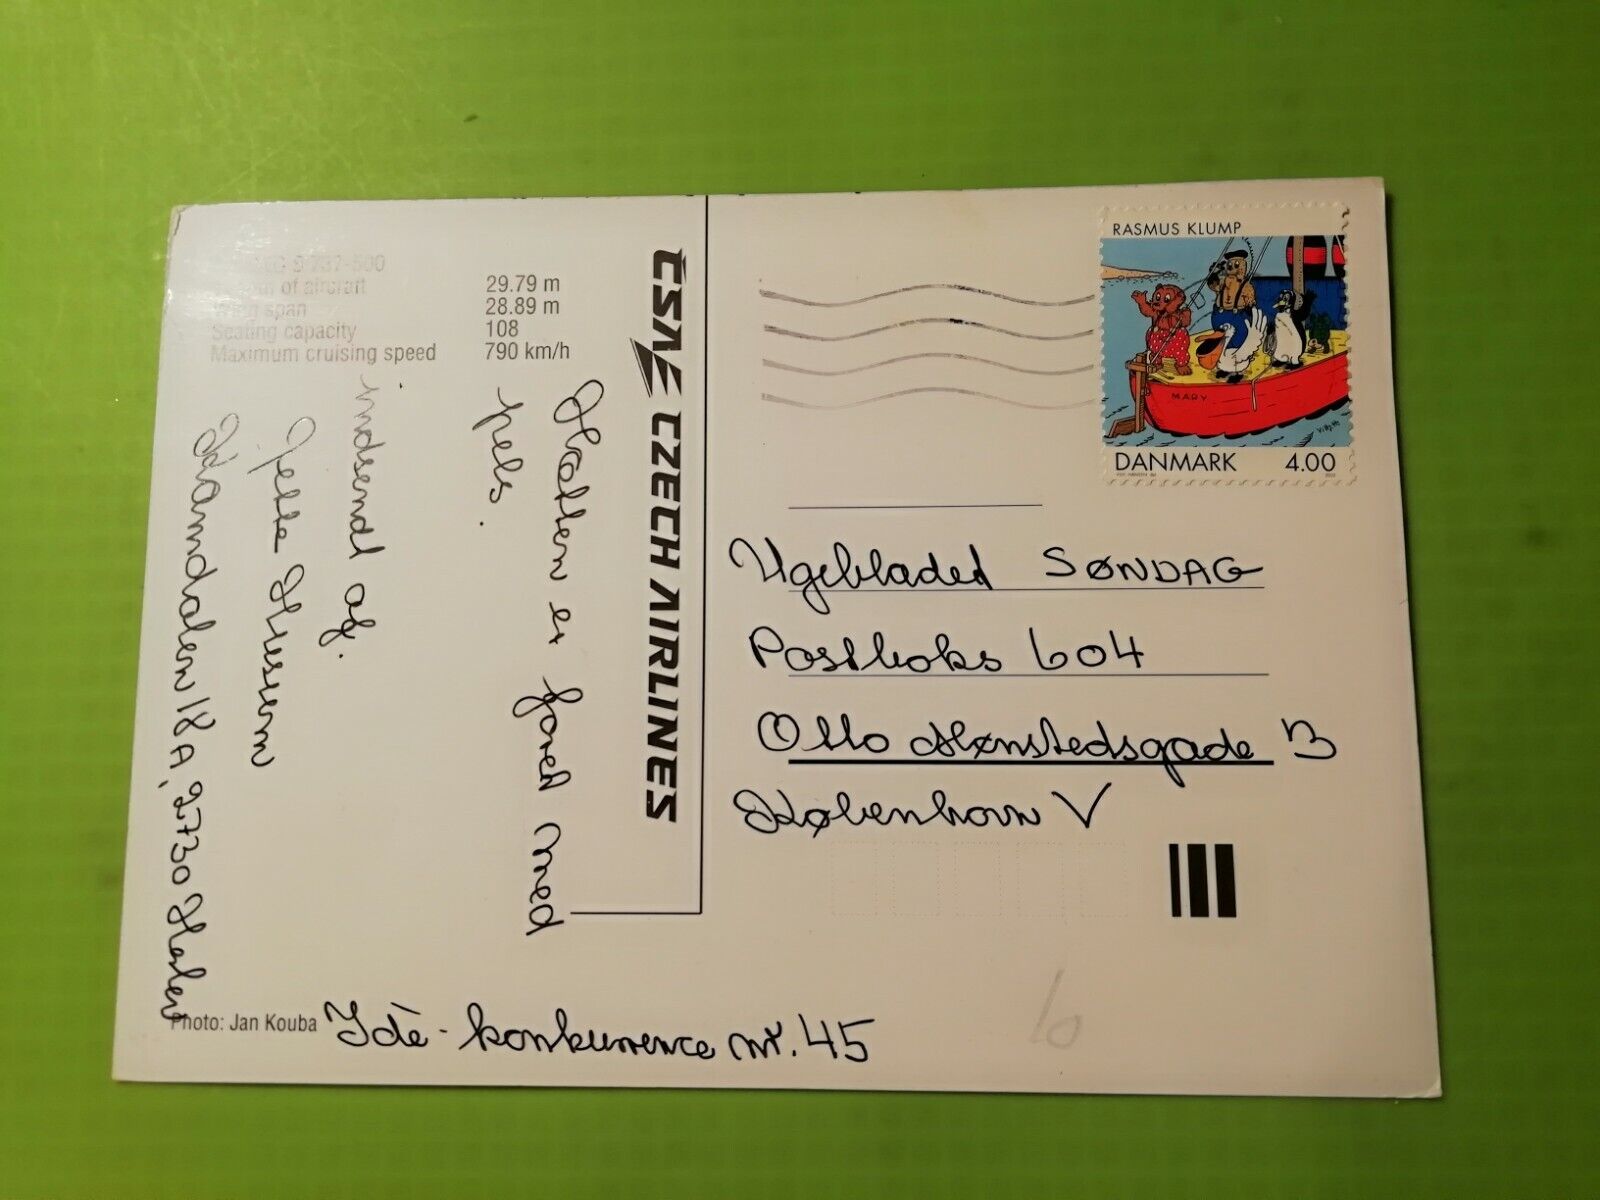 737-500
of aircraft 29.79 m
span 28.89 m
Seating capacity 108
Maximum cruising speed 790 km/h
ČSA CZECH AIRLINES
er foret med
pels.
indsendt af.
Jette
18 A, 2730 Herlev
Photo: Jan Kouba
Idè-konkurrence nr. 45
RASMUS KLUMP
MARY
DANMARK 4.00
Ugebladet SØNDAG
Postboks 604
Otto Mønstedsgade 3
København V
6